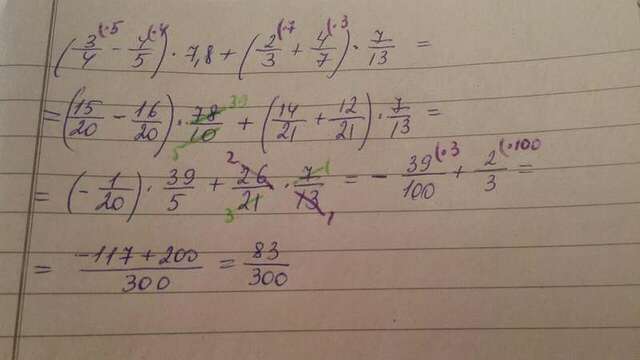 (3/4 (·5 - 4/5 (·4) · 7,8 + (2/3 (·7 + 4/7 (·3) · 7/13 =
= (15/20 - 16/20) · 78/10 39 5 + (14/21 + 12/21) · 7/13 =
= (- 1/20) · 39/5 + 26/21 2 3 · 7/13 1 1 = - 39/100 (·3 + 2/3 (·100 =
= -117 + 200/300 = 83/300